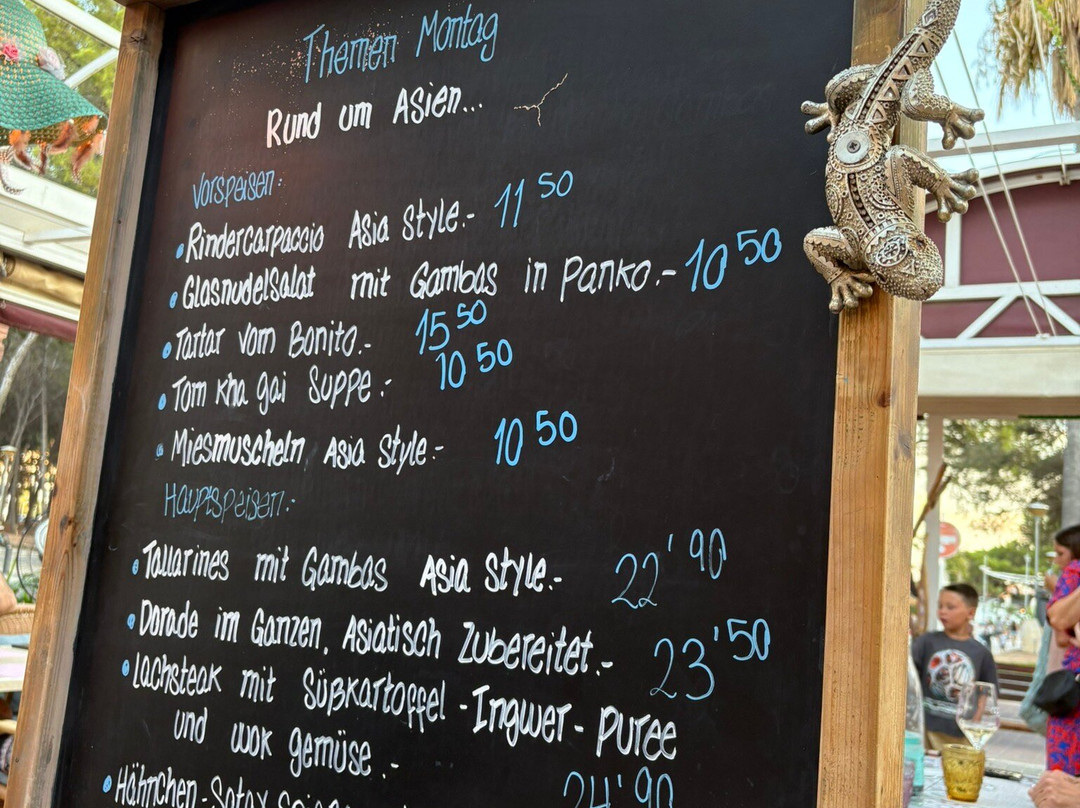 Themen Montag
Rund um Asien...
Vorspeisen:
• Rindercarpaccio Asia Style.- 11 50
• Glasnudelsalat mit Gambas in Panko.- 10 50
• Tartar vom Bonito.- 15 50
• Tom kha gai Suppe.- 10 50
• Miesmuscheln Asia Style.- 10 50
Hauptspeisen:-
• Tallarines mit Gambas Asia Style.- 22'90
• Dorade im Ganzen, Asiatisch Zubereitet.- 23'50
• Lachsteak mit Süßkartoffel - Ingwer - Püree
und wok gemüse.- 24'90
• Hähnchen - Satay